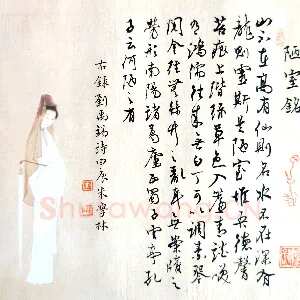 陋室銘
山不在高有仙則名水不在深有
龍則靈斯是陋室惟吾德馨
苔痕上階綠草色入簾青談笑
有鴻儒往來無白丁可以調素琴
閱金經無絲竹之亂耳無案牘之
勞形南陽諸葛廬西蜀子雲亭孔
子云何陋之有
古錄劉禹錫詩